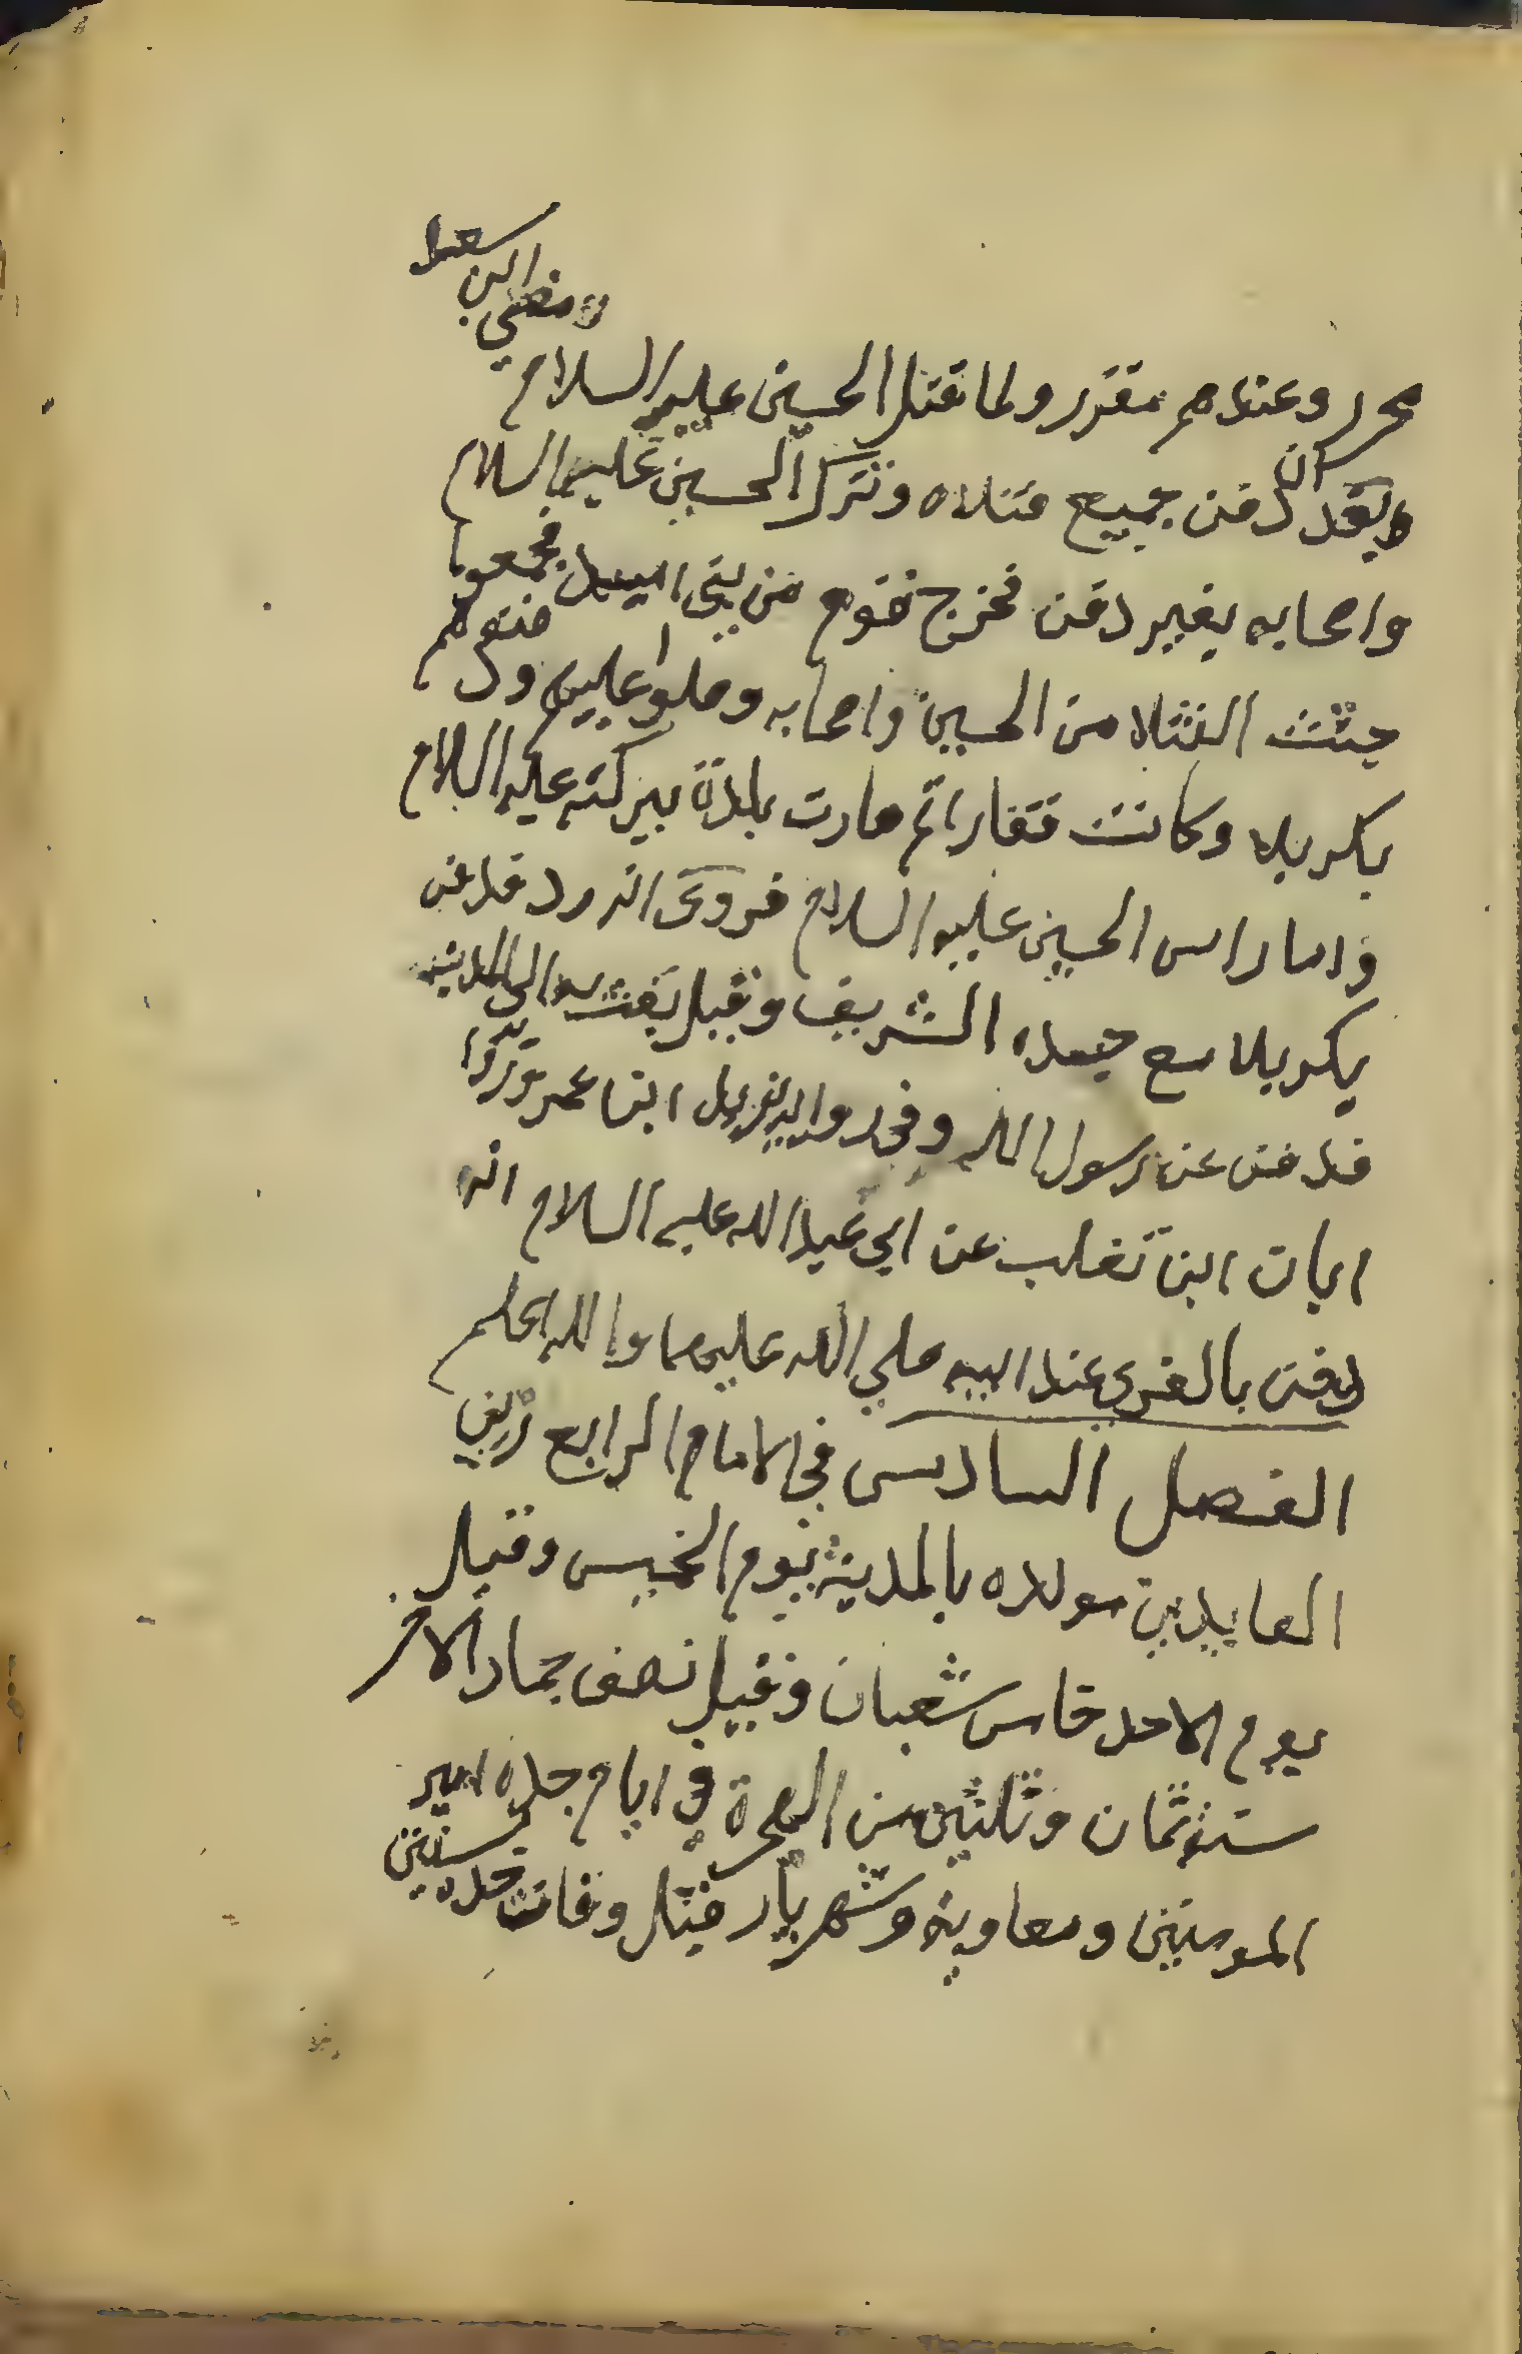 محرر وعندهم مقرر ولما قتل الحسين عليه السلام مضى ابن سعد
بعد ان دفن جميع قتلاه وترك الحسين عليه السلام
واصحابه بغير دفن فخرج قوم من بني اسد فجمعوا
جثث القتلا من الحسين واصحابه وصلوا عليهم ودفنوهم
بكربلا وكانت قفارا ثم صارت بلدة ببركته عليه السلام
واما راس الحسين عليه السلام فروى انه رد فدفن
بكربلا مع جسده الشريف وقيل بعث به الى المدينة
فدفن عند رسول الله وفي رواية يزيد ابن عمر
ابان ابن تغلب عن ابي عبد الله عليه السلام انه
دفن بالغرى عند ابيه صلى الله عليهما والله اعلم
الفصل السادس في الامام الرابع زين
العابدين مولده بالمدينة يوم الخميس وقيل
يوم الاحد خامس شعبان وقيل نصف جماد الاخر
سنة ثمان وثلثين من الهجرة في ايام جده امير
المومنين ومعاوية وشهريار قبل وفات جده بسنتين